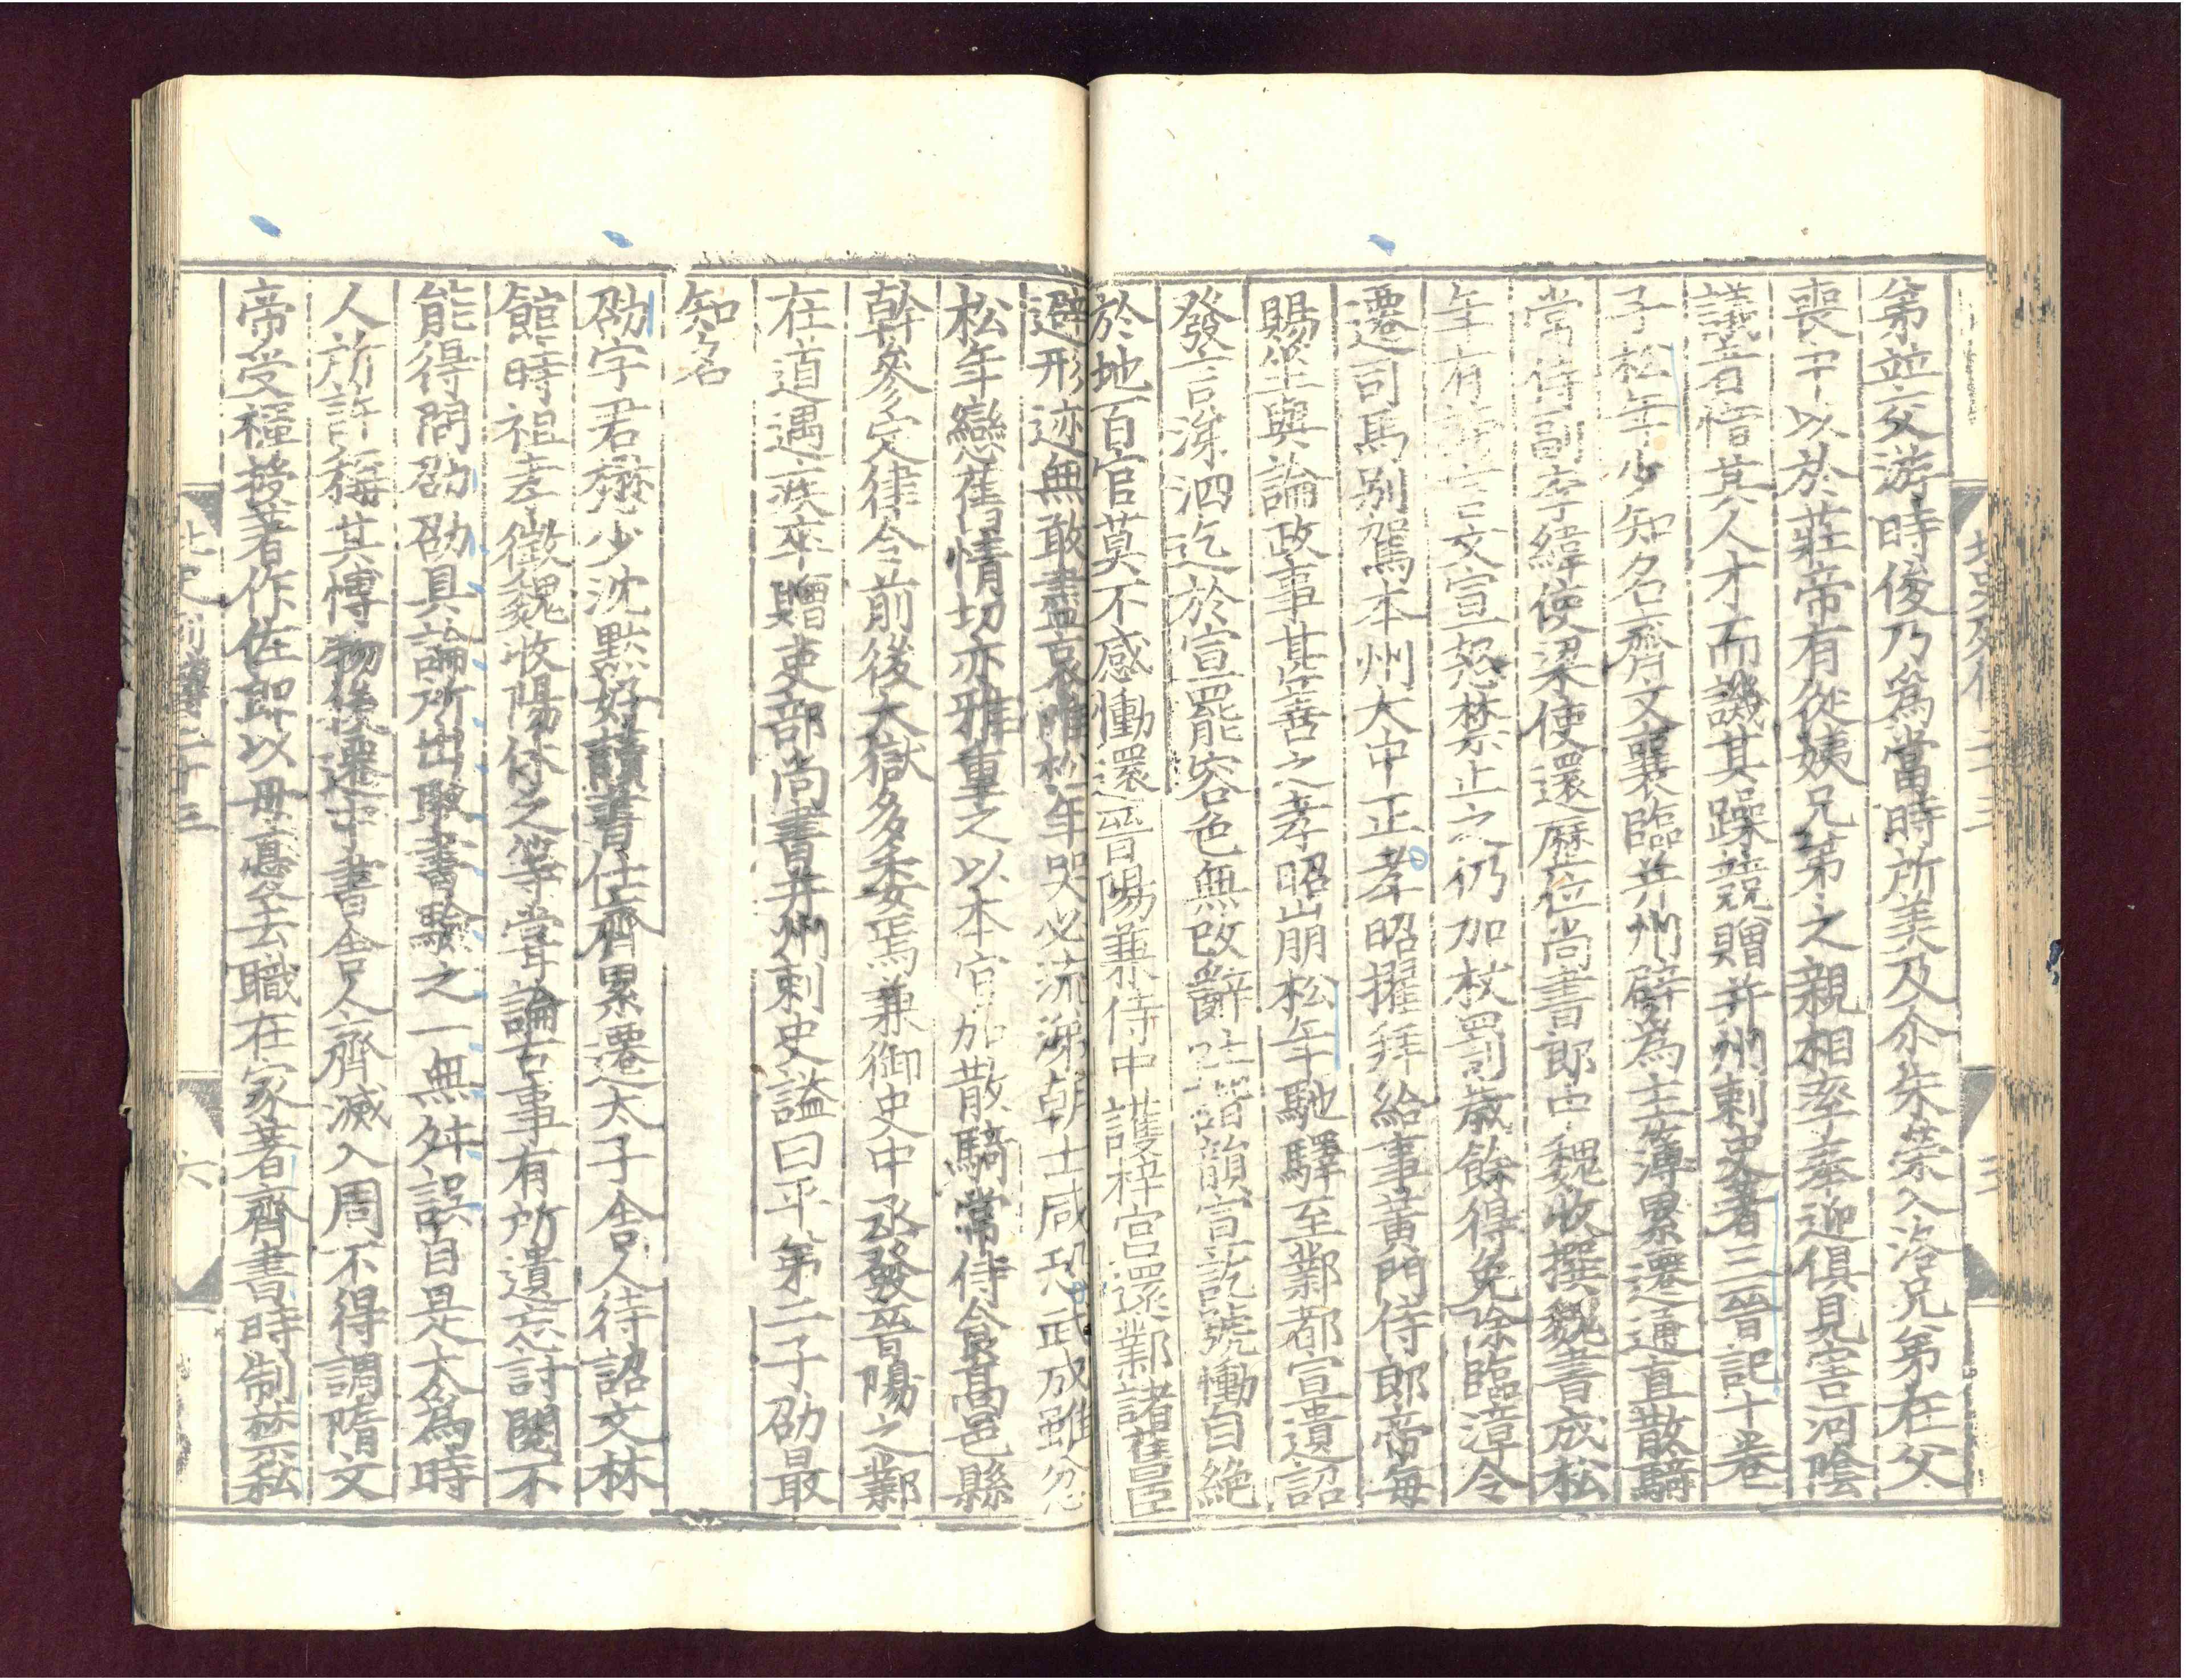 北史列傳二十三
五
弟並交游時俊乃爲當時所美及尒朱榮入洛兄弟在父
喪中以於莊帝有從姨兄弟之親相率奉迎俱見害河陰
議者惜其人才而譏其躁競贈并州刺史著三晉記十卷
子松年少知名齊文襄臨并州辟爲主簿累遷通直散騎
常侍副李緯使梁使還歷位尚書郎中魏收撰魏書成松
年有謗言文宣怒禁止之仍加杖罰歲餘得免除臨漳令
遷司馬別駕本州大中正孝昭擢拜給事黃門侍郎帝每
賜坐與論政事甚善之孝昭崩松年馳驛至鄴都宣遺詔
發言涕泗迄於宣罷容色無改辭吐諧韻宣訖號慟自絕
於地百官莫不感慟還晉陽兼侍中護梓宮還鄴諸舊臣
避形迹無敢盡哀唯松年哭必流涕朝士咸恐武成雖忿
松年戀舊情切亦雅重之以本官加散騎常侍食高邑縣
幹參定律令前後大獄多委焉兼御史中丞發晉陽之鄴
在道遇疾卒贈吏部尚書并州刺史謚曰平第二子劭最
知名
劭字君懋少沈黙好讀書仕齊累遷太子舍人待詔文林
館時祖孝徵魏收陽休之等嘗論古事有所遺忘討閱不
能得問劭劭具論所出取書驗之一無舛誤自是大爲時
人所許稱其博物後遷中書舍人齊滅入周不得調隋文
帝受禪授著作佐郎以母憂去職在家著齊書時制禁私
北史列傳二十三
六